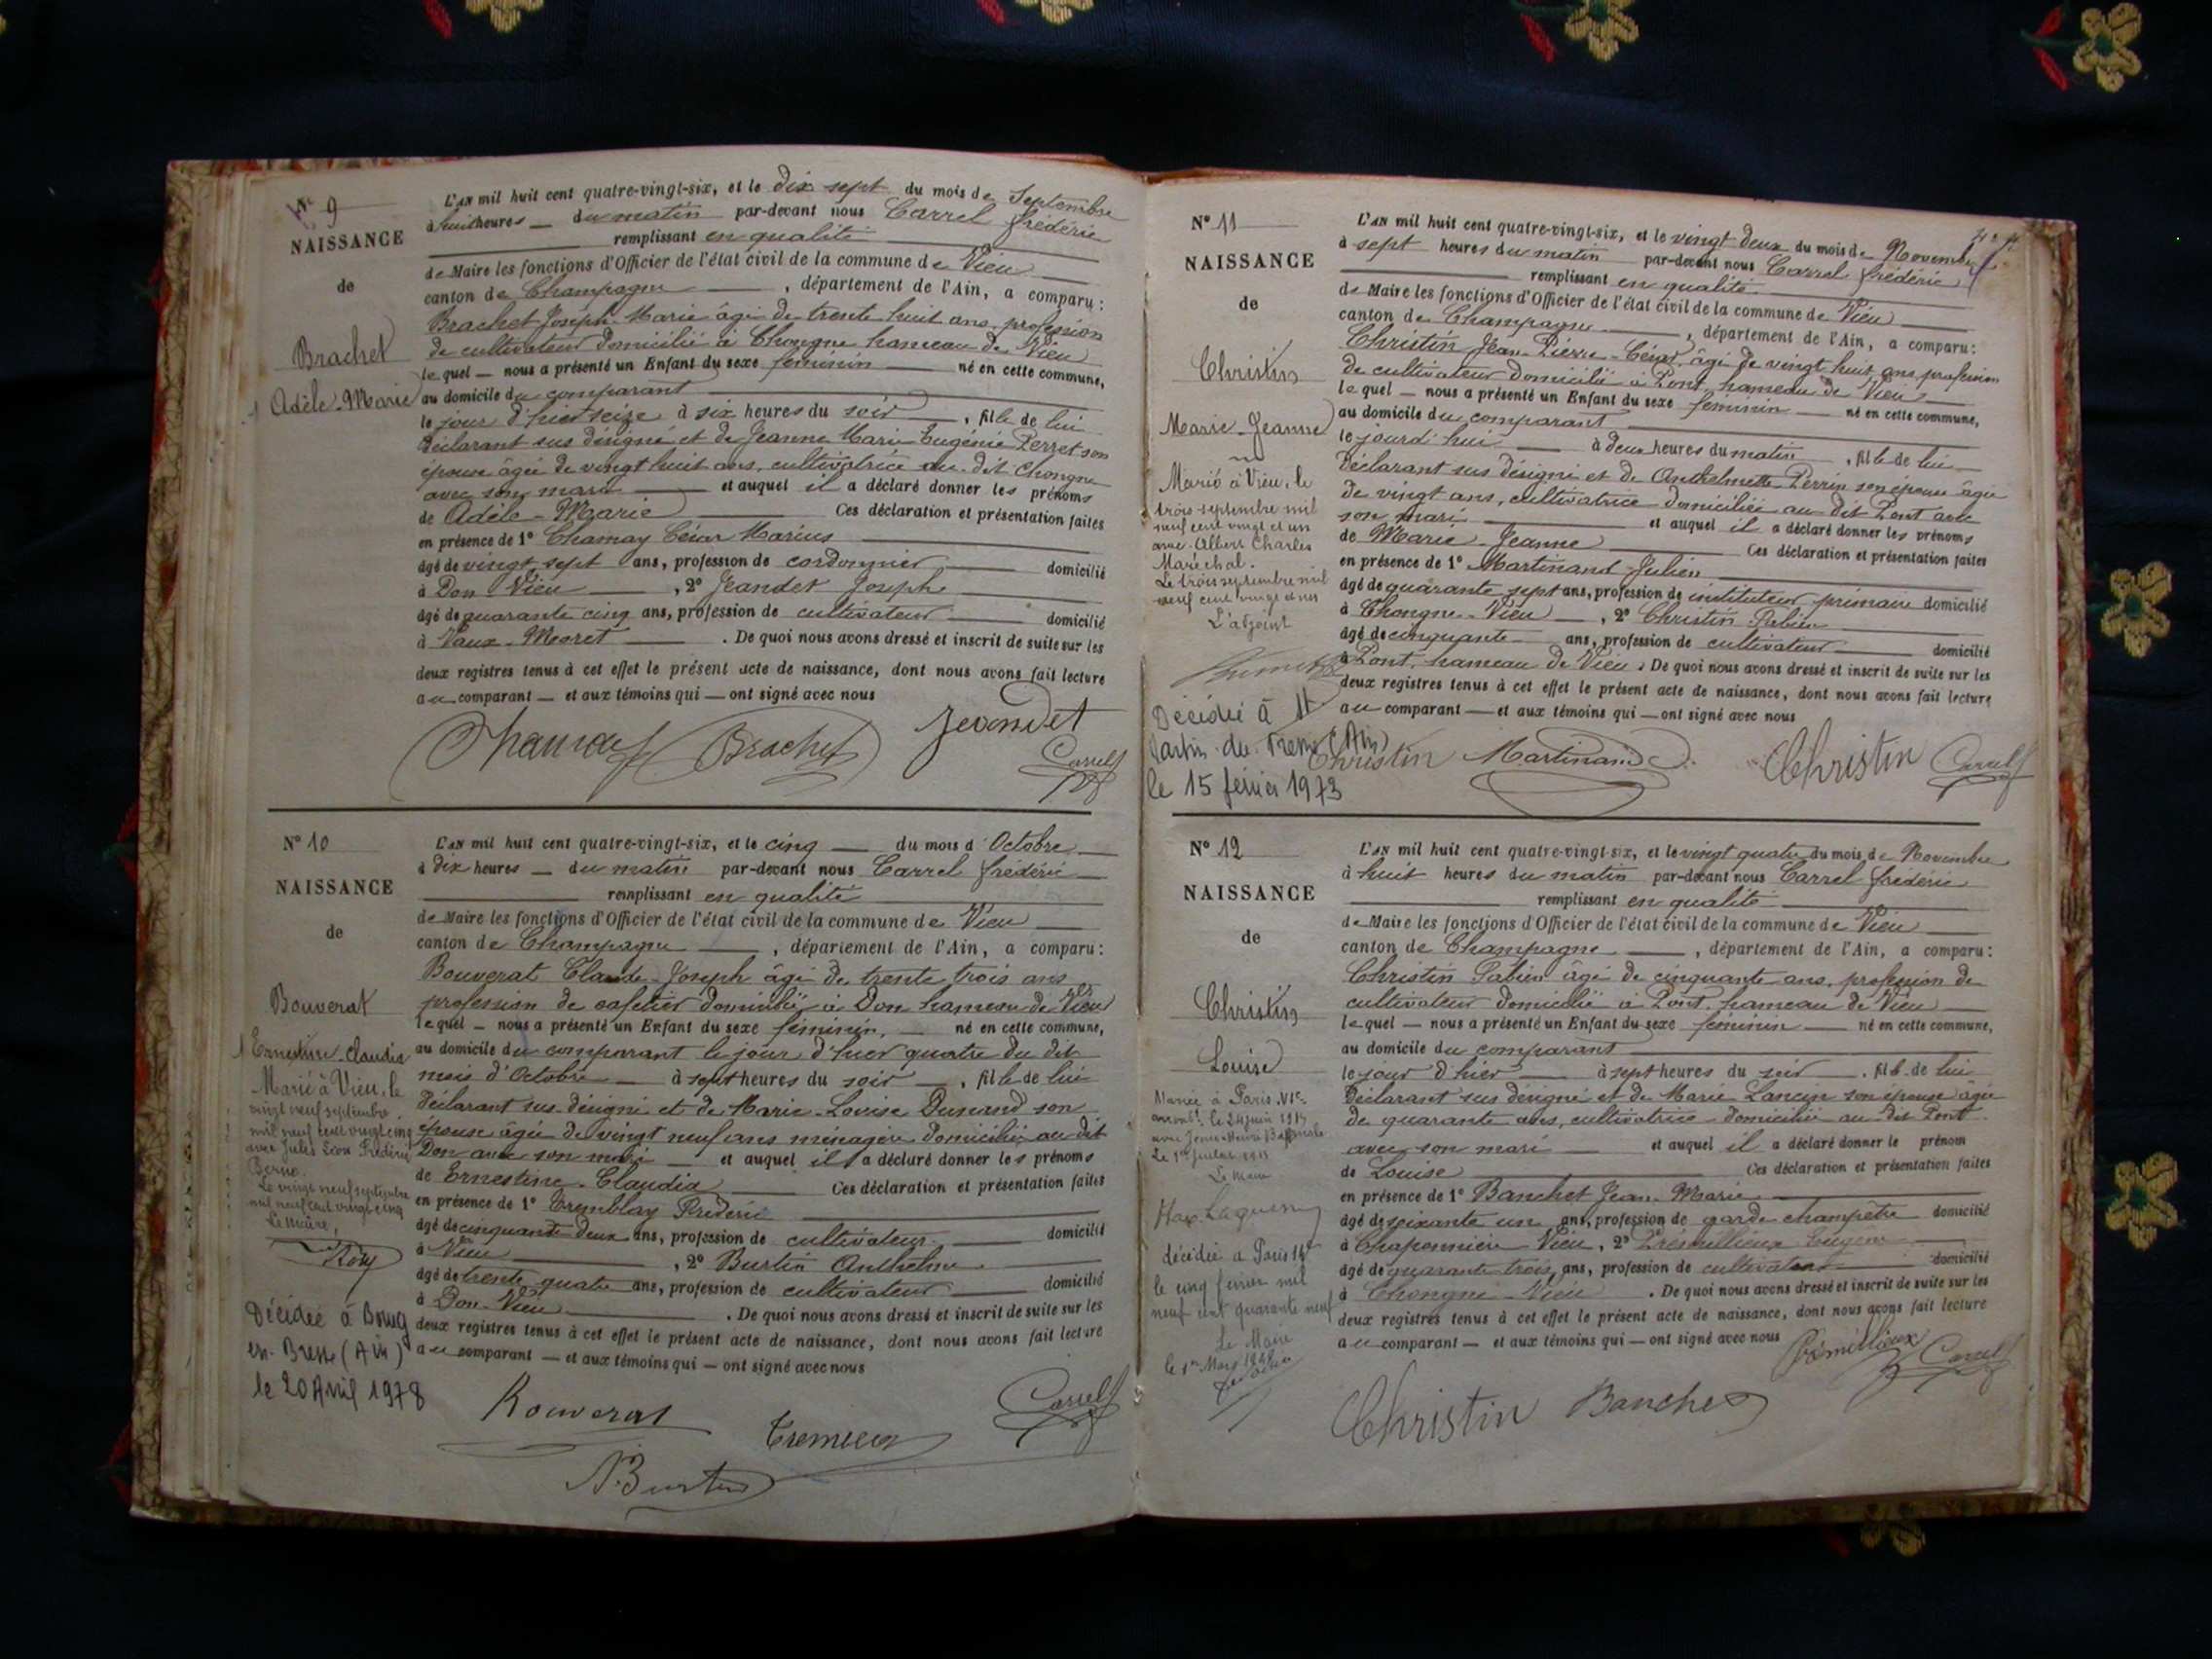 N° 9
NAISSANCE
de
Brachet
Adèle-Marie
L'AN mil huit cent quatre-vingt-six, et le dix sept du mois de Septembre
à huit heures — du matin par-devant nous Carrel frédéric
remplissant en qualité
de Maire les fonctions d'Officier de l'état civil de la commune de Vieu
canton de Champagne —, département de l'Ain, a comparu :
Brachet Joseph Marie âgé de trente huit ans, profession
de cultivateur domicilié à Chongne hameau de Vieu
lequel — nous a présenté un Enfant du sexe féminin — né en cette commune,
au domicile du comparant
le jour d'hier seize à six heures du soir —, fille de lui
déclarant sus désigné et de Jeanne Marie Eugénie Perret son
épouse âgée de vingt huit ans, cultivatrice au dit Chongne
avec son mari — et auquel il a déclaré donner les prénoms
de Adèle-Marie — Ces déclaration et présentation faites
en présence de 1° Chamay César Marius
âgé de vingt sept ans, profession de cordonnier — domicilié
à Don Vieu —, 2° Jeandet Joseph
âgé de quarante cinq ans, profession de cultivateur — domicilié
à Vaux-Moret —. De quoi nous avons dressé et inscrit de suite sur les
deux registres tenus à cet effet le présent acte de naissance, dont nous avons fait lecture
au comparant — et aux témoins qui — ont signé avec nous
Chamay Brachet Jeandet
Carrel
N° 10
NAISSANCE
de
Bouverat
Ernestine-Claudia
Marié à Vieu, le
vingt neuf septembre
mil neuf cent vingt cinq
avec Jules Léon Frédéric
Berne.
Le vingt neuf septembre
mil neuf cent vingt cinq
Le Maire,
Décédée à Bourg
en-Bresse (Ain)
le 20 Avril 1978
L'AN mil huit cent quatre-vingt-six, et le cinq — du mois d'Octobre
à dix heures — du matin par-devant nous Carrel frédéric
remplissant en qualité
de Maire les fonctions d'Officier de l'état civil de la commune de Vieu
canton de Champagne —, département de l'Ain, a comparu :
Bouverat Claude-Joseph âgé de trente trois ans
profession de cafetier domicilié à Don hameau de Vieu
lequel — nous a présenté un Enfant du sexe féminin, — né en cette commune,
au domicile du comparant le jour d'hier quatre du dit
mois d'Octobre — à sept heures du soir —, fille de lui
déclarant sus désigné et de Marie-Louise Dunand son
épouse âgée de vingt neuf ans ménagère domiciliée au dit
Don avec son mari — et auquel il a déclaré donner les prénoms
de Ernestine-Claudia — Ces déclaration et présentation faites
en présence de 1° Tremblay Frédéric
âgé de cinquante deux ans, profession de cultivateur — domicilié
à Vieu —, 2° Burtin Anthelme
âgé de trente quatre ans, profession de cultivateur — domicilié
à Don-Vieu —. De quoi nous avons dressé et inscrit de suite sur les
deux registres tenus à cet effet le présent acte de naissance, dont nous avons fait lecture
au comparant — et aux témoins qui — ont signé avec nous
Bouverat Carrel
Burtin
N° 11
NAISSANCE
de
Christin
Marie-Jeanne
Marié à Vieu, le
trois septembre mil
neuf cent vingt et un
avec Albert Charles
Maréchal.
Le trois septembre mil
neuf cent vingt et un
L'adjoint
Décédée à St
Martin-du-Frêne (Ain)
le 15 février 1973
L'AN mil huit cent quatre-vingt-six, et le vingt deux du mois de Novembre
à sept heures du matin par-devant nous Carrel frédéric
remplissant en qualité
de Maire les fonctions d'Officier de l'état civil de la commune de Vieu
canton de Champagne —, département de l'Ain, a comparu :
Christin Jean-Pierre-César âgé de vingt huit ans profession
de cultivateur domicilié à Pont, hameau de Vieu
lequel — nous a présenté un Enfant du sexe féminin — né en cette commune,
au domicile du comparant
le jourd'hui — à deux heures du matin, fille de lui
déclarant sus désigné et de Anthelmette Perrin son épouse âgée
de vingt ans, cultivatrice domiciliée au dit Pont avec
son mari — et auquel il a déclaré donner les prénoms
de Marie-Jeanne — Ces déclaration et présentation faites
en présence de 1° Martinand Julien
âgé de quarante sept ans, profession de instituteur primaire domicilié
à Chongne-Vieu —, 2° Christin Fabien
âgé de cinquante ans, profession de cultivateur — domicilié
à Pont, hameau de Vieu. De quoi nous avons dressé et inscrit de suite sur les
deux registres tenus à cet effet le présent acte de naissance, dont nous avons fait lecture
au comparant — et aux témoins qui — ont signé avec nous
Christin Martinand Christin Carrel
N° 12
NAISSANCE
de
Christin
Louise
Mariée à Paris, VIe
arrondt le 24 juin 1915
Le Maire
décédée à Paris 14e
le cinq février mil
neuf cent quarante neuf
Le Maire
L'AN mil huit cent quatre-vingt-six, et le vingt quatre du mois de Novembre
à huit heures du matin par-devant nous Carrel frédéric
remplissant en qualité
de Maire les fonctions d'Officier de l'état civil de la commune de Vieu
canton de Champagne —, département de l'Ain, a comparu :
Christin Fabien âgé de cinquante ans, profession de
cultivateur domicilié à Pont, hameau de Vieu
lequel — nous a présenté un Enfant du sexe féminin — né en cette commune,
au domicile du comparant
le jour d'hier — à sept heures du soir —, fille de lui
déclarant sus désigné et de Marie Lancin son épouse âgée
de quarante ans, cultivatrice domiciliée au dit Pont
avec son mari — et auquel il a déclaré donner le prénom
de Louise — Ces déclaration et présentation faites
en présence de 1° Banchet Jean-Marie
âgé de soixante un ans, profession de garde champêtre domicilié
à Chaponnière Vieu, 2° Prémillieux Eugène
âgé de quarante trois ans, profession de cultivateur — domicilié
à Chongne-Vieu. De quoi nous avons dressé et inscrit de suite sur les
deux registres tenus à cet effet le présent acte de naissance, dont nous avons fait lecture
au comparant — et aux témoins qui — ont signé avec nous
Prémillieux Carrel
Christin Banchet